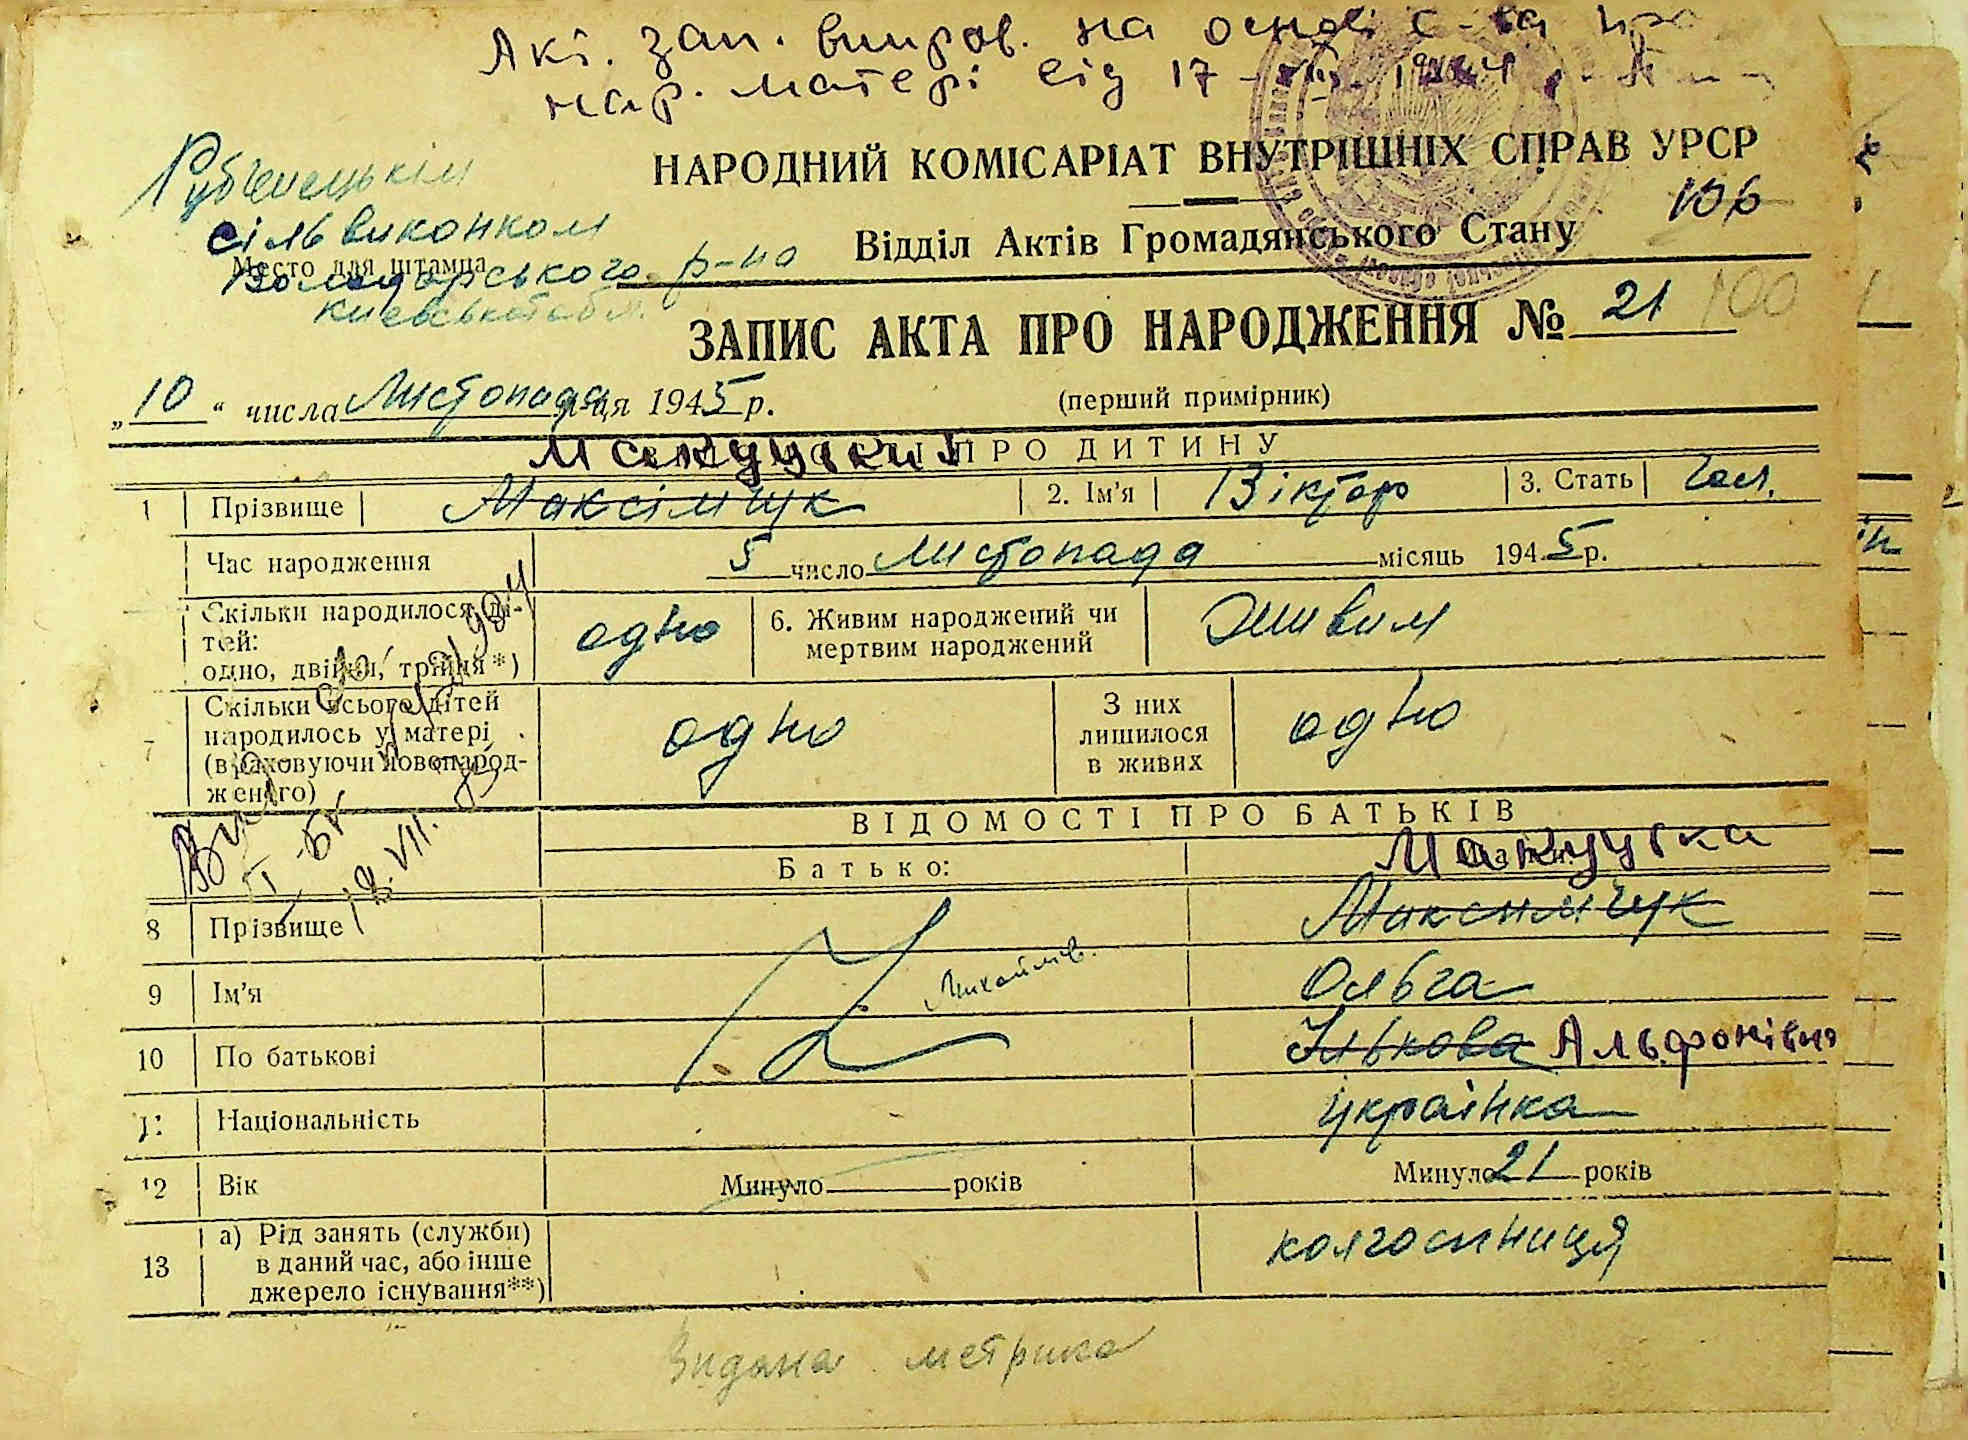 Акт. зап. виправ. на основі с-ва про
нар. матері від 17
Рубченецькій
сільвиконком
Место для штампа
Володарського р-на
Київської обл.
НАРОДНИЙ КОМІСАРІАТ ВНУТРІШНІХ СПРАВ УРСР
106
Відділ Актів Громадянського Стану
ЗАПИС АКТА ПРО НАРОДЖЕННЯ № 21 100
„10“ числа Листопада м-ця 1945 р.
(перший примірник)
ПРО ДИТИНУ
1 Прізвище Максімчук 2. Ім'я Віктор 3. Стать Чол.
Час народження 5 число Листопада місяць 1945 р.
Скільки народилося ді-
тей:
одно, двійня, трійня *) одно 6. Живим народжений чи
мертвим народжений Живим
7 Скільки всього дітей
народилось у матері
(враховуючи новонарод-
женого) одно З них
лишилося
в живих одно
ВІДОМОСТІ ПРО БАТЬКІВ
Батько:
Макуцька
8 Прізвище Максимчук
9 Ім'я Михайлів. Ольга
10 По батькові Ількова Альфонівна
11 Національність українка
12 Вік Минуло років Минуло 21 років
13 а) Рід занять (служби)
в даний час, або інше
джерело існування**) колгоспниця
Видана метрика